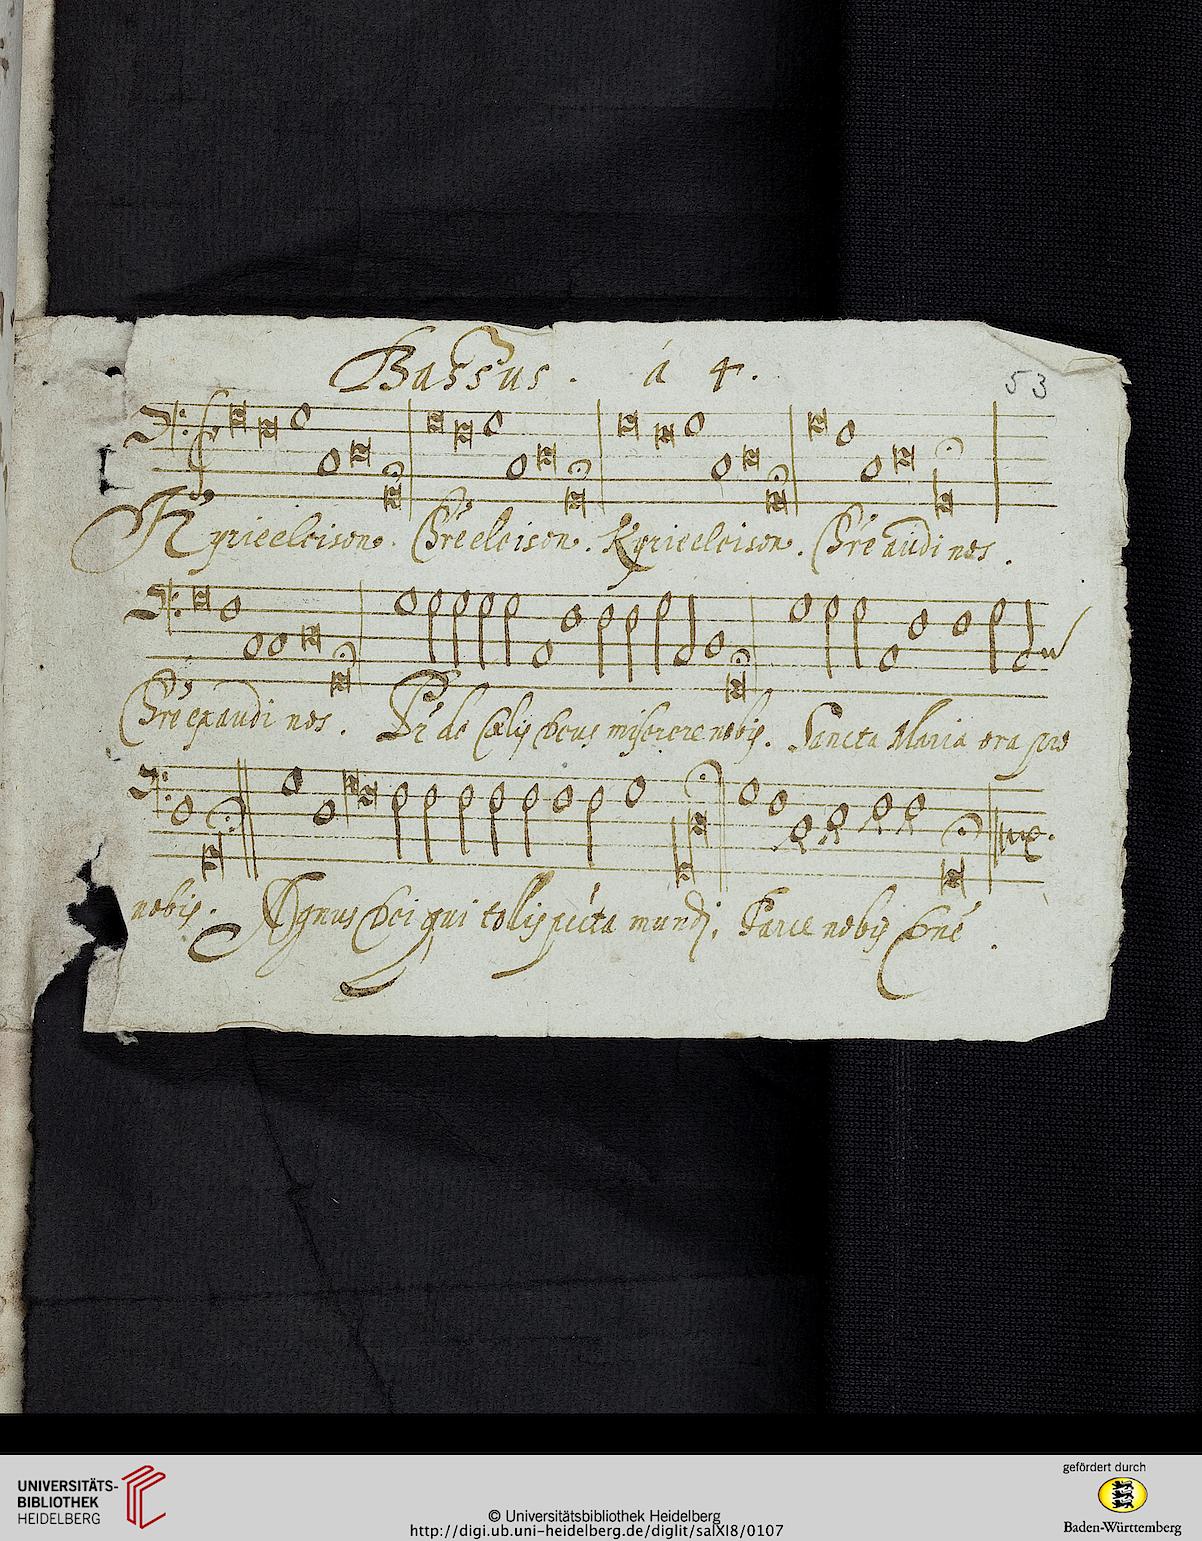 Bassus. á 4.
53
Kyrieeleison. Chr̃eeleison. Kyrieeleison. Chr̃e audi nos.
Chr̃e exaudi nos. de Cœlis Deus miserere nobis. Sancta Maria ora pro
nobis. Agnus Dei qui tollis pc̃ta mundi, Parce nobis Dnẽ.
UNIVERSITÄTS-
BIBLIOTHEK
HEIDELBERG
© Universitätsbibliothek Heidelberg
http://digi.ub.uni-heidelberg.de/diglit/salXI8/0107
gefördert durch
Baden-Württemberg